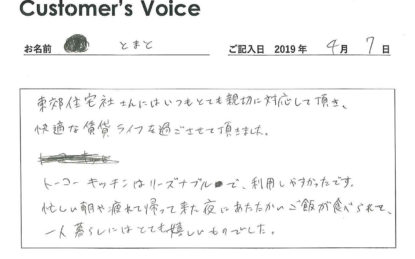 Customer's Voice
お名前 とまと ご記入日 2019年 4月 7日
東郊住宅社さんにはいつもとても親切に対応して頂き、
快適な賃貸ライフを過ごさせて頂きました。
トーコーキッチンはリーズナブルで、利用しやすかったです。
忙しい朝や疲れて帰って来た夜にあたたかいご飯が食べられて、
一人暮らしにはとても嬉しいものでした。